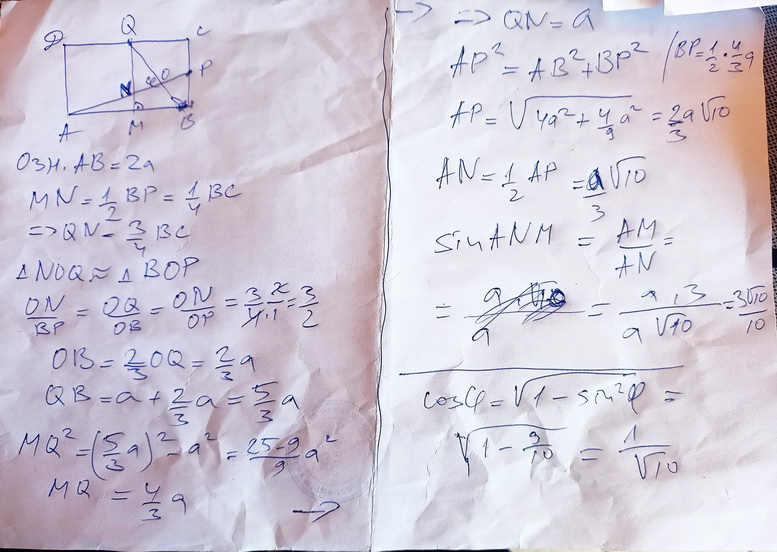 D Q C
N O P
A M B
ОЗН. AB = 2a
MN = 1/2 BP = 1/4 BC
=> QN = 3/4 BC
△NOQ ≈ △BOP
QN/BP = OQ/OB = ON/OP = 3/4 · 2/1 = 3/2
OB = 2/3 OQ = 2/3 a
QB = a + 2/3 a = 5/3 a
MQ² = (5/3 a)² - a² = (25-9)/9 a²
MQ = 4/3 a
→
→ => QN = a
AP² = AB² + BP² / BP = 1/2 · 4/3 a
AP = √(4a² + 4/9 a²) = 2/3 a √10
AN = 1/2 AP = a/3 √10
sin ANM = AM/AN =
= a · 3 / a √10 = 3√10/10
cos φ = √(1 - sin² φ) =
√(1 - 9/10) = 1/√10